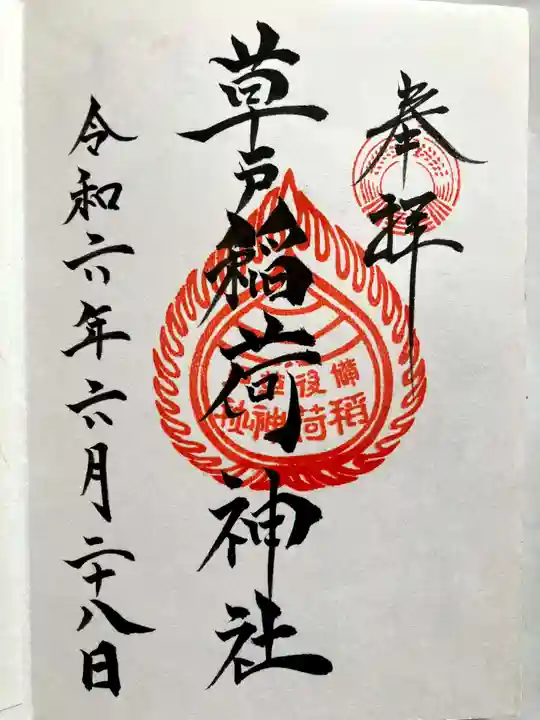 奉拝
草戸稲荷神社
備後
稲荷神社
令和六年六月二十八日